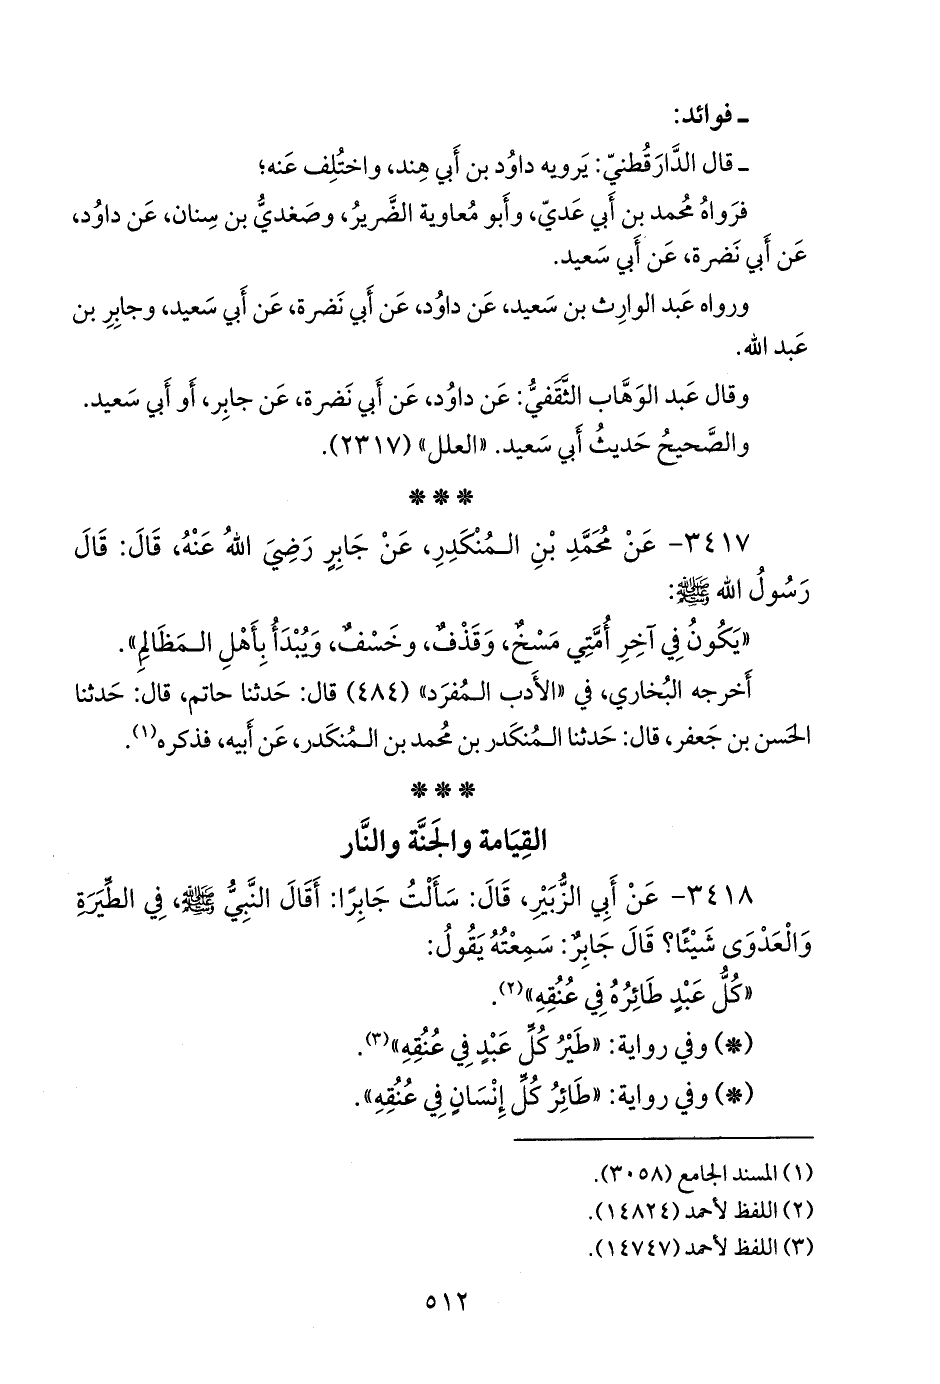 ـ فوائد:
ـ قال الدَّارَقُطنيّ: يَرويه داوُد بن أَبي هِند، واختُلِف عَنه؛
فرَواهُ مُحمد بن أَبي عَديّ، وأَبو مُعاوية الضَّريرُ، وصَغديُّ بن سِنان، عَن داوُد،
عَن أَبي نَضرة، عَن أَبي سَعيد.
ورواه عَبد الوارِث بن سَعيد، عَن داوُد، عَن أَبي نَضرة، عَن أَبي سَعيد، وجابِرِ بن
عَبد الله.
وقال عَبد الوَهَّاب الثَّقَفيُّ: عَن داوُد، عَن أَبي نَضرة، عَن جابِر، أَو أَبي سَعيد.
والصَّحيحُ حَديثُ أَبي سَعيد. «العلل» (٢٣١٧).
* * *
٣٤١٧- عَنْ مُحَمَّدِ بْنِ الـمُنْكَدِرِ، عَنْ جَابِرٍ رَضِيَ اللهُ عَنْهُ، قَالَ: قَالَ
رَسُولُ الله ﷺ:
«يَكُونُ فِي آخِرِ أُمَّتِي مَسْخٌ، وَقَذْفٌ، وخَسْفٌ، وَيُبْدَأُ بِأَهْلِ الـمَظَالِمِ».
أَخرجه البُخاري، في «الأَدب الـمُفرَد» (٤٨٤) قال: حَدثنا حاتم، قال: حَدثنا
الحَسن بن جَعفر، قال: حَدثنا الـمُنكَدر بن مُحمد بن الـمُنكَدر، عَن أَبيه، فذكره(١).
* * *
القِيَامة والجَنَّة والنَّار
٣٤١٨- عَنْ أَبِي الزُّبَيْرِ، قَالَ: سَأَلْتُ جَابِرًا: أَقَالَ النَّبِيُّ ﷺ، فِي الطِّيَرَةِ
وَالْعَدْوَى شَيْئًا؟ قَالَ جَابِرٌ: سَمِعْتُهُ يَقُولُ:
«كُلُّ عَبْدٍ طَائِرُهُ فِي عُنُقِهِ»(٢).
(*) وفي رواية: «طَيْرُ كُلِّ عَبْدٍ فِي عُنُقِهِ»(٣).
(*) وفي رواية: «طَائِرُ كُلِّ إِنْسَانٍ فِي عُنُقِهِ».
(١) المسند الجامع (٣٠٥٨).
(٢) اللفظ لأحمد (١٤٨٢٤).
(٣) اللفظ لأحمد (١٤٧٤٧).
٥١٢